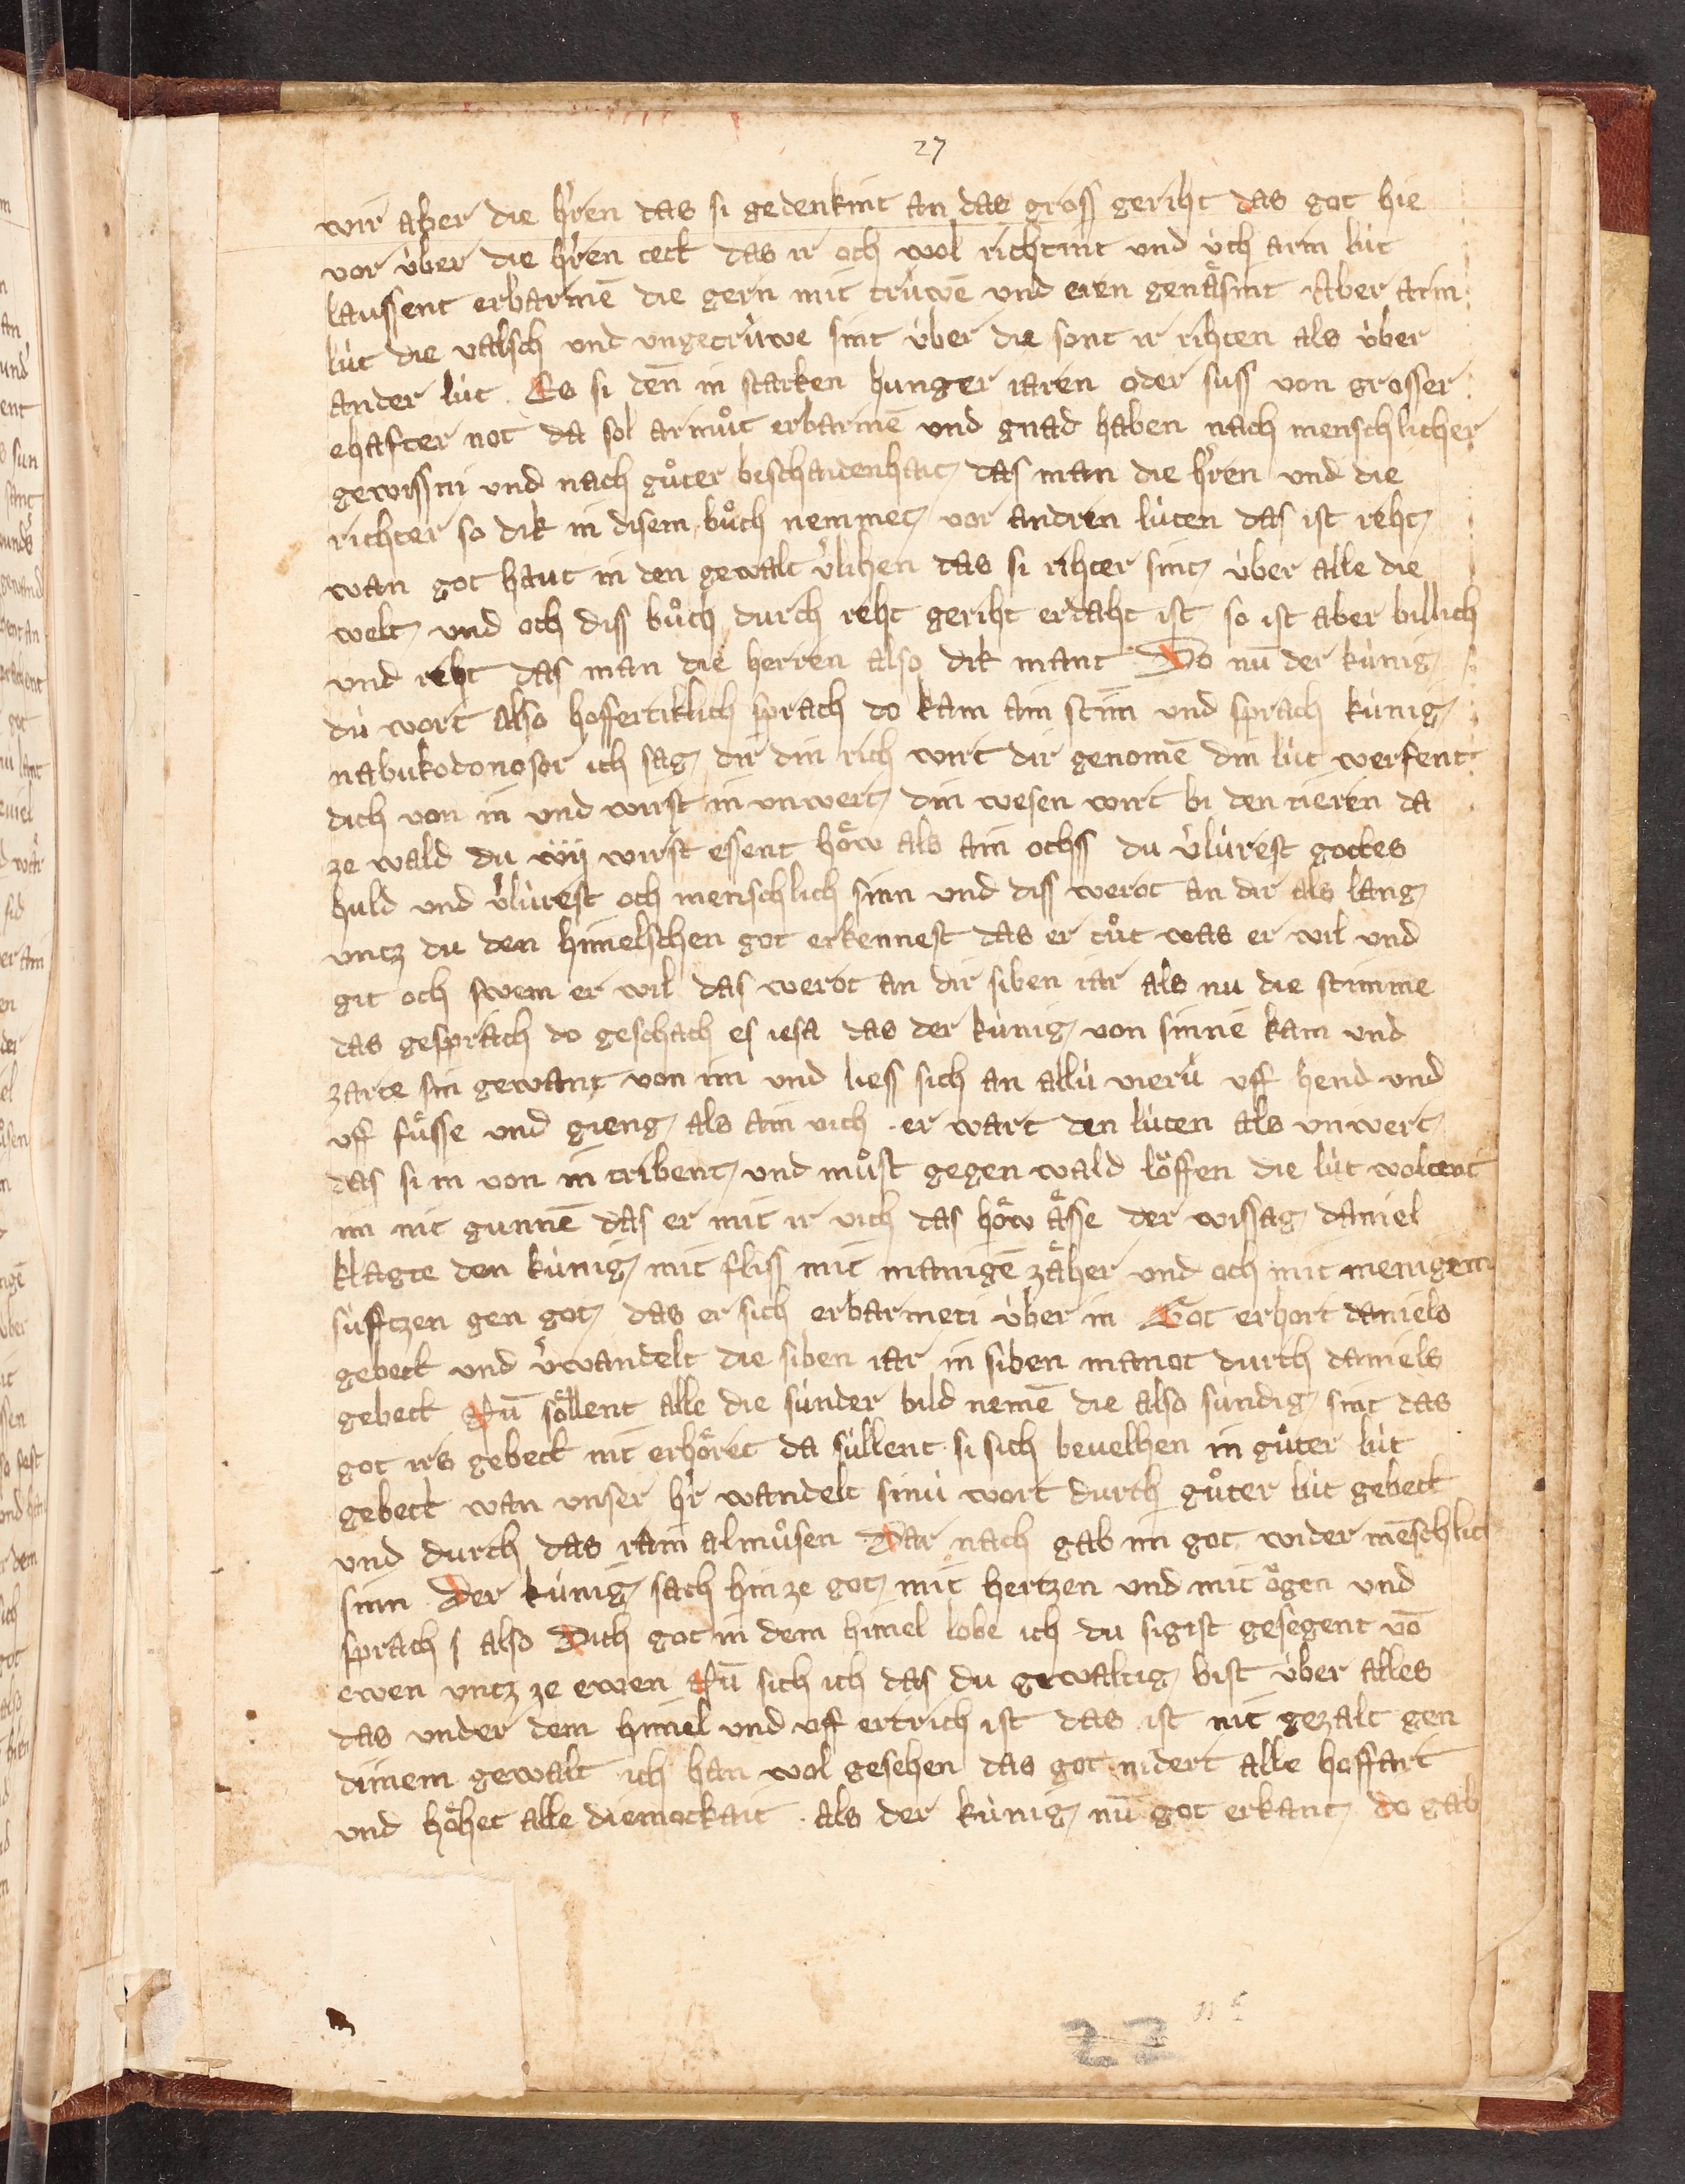 27
wir aber die hr̄en das si gedenkint an das gross geriht das got hie
vor úber die hr̄en tett das ir och wol richtint und úch arm lút
laussent erbarmē die gern mit trúwē und eren genäsint Aber arm
lút die valsch und ungetrúwe sint úber die sont ir rihten als úber
ander lút . Es si deñ in starken hunger iaren oder suss von grosser
ehafter not da sol armůt erbarmē und gnad haben nach menschlicher
gewissni und nach gůter beschaidenhait das man die hr̄en und die
richter so dik in disem bůch nemmet vor andren lúten das ist reht
wan got haut in den gewalt v̓lihen das si rihter sint úber alle die
welt und och diss bůch durch reht geriht erdaht ist so ist aber billich
und reht das man die herren also dik mant Do nū der kúnig
dú wort also hoffertiklich sprach do kam ain stim̄ und sprach kúnig
nabukodonosor ich sag dir din rich wirt dir genomē din lút werfent
dich von in und wirst in unwert din wesen wirt bi den tieren da
ze wald du wirst essent höw als ain ochss du v̓lúrest gottes
huld und v̓lúrest och menschlich sinn und diss werot an dir als lang
untz du den himelschen got erkennest das er tůt was er wil und
git och swem er wil das werot an dir siben iar als nu die stimme
das gesprach do geschach es iesa das der kúnig von sinnē kam und
zarte sin gewant von im und liess sich an allú vierú uff hend und
uff füsse und gieng als ain vich . er wart den lúten als unwert
das si in von in tribent und můst gegen wald löffen die lút woltent
im nit gunnē das er mit ir vich das höw ässe der wissag daniel
klagte den kúnig mit fliss mit manigē zäher und och mit menigem
súfftzen gen got das er sich erbarmeti úber in Got erhort daniels
gebett und v̓wandelt die siben iar in siben manot durch daniels
gebett Nū söllent alle die súnder bild nemē die also súndig sint das
got irs gebett nit erhöret da súllent si sich bevelhen in gůter lút
gebett wan unser hr̄ wandelt sinú wort durch gůter lút gebett
und durch das rain almůsen Dar nach gab im got wider mēschlich
sinn Der kúnig sach hin ze got mit hertzen und mit ögen und
sprach also Dich got in dem himel lobe ich du sigist gesegent vō
ewen untz ze ewen Nū sich ich das du gewaltig bist úber alles
das under dem himel und uff ertrich ist das ist nit gezalt gen
dinem gewalt ich han wol gesehen das got nidert alle hoffart
und höhet alle diemockait . als der kúnig nū got erkant do gab
22